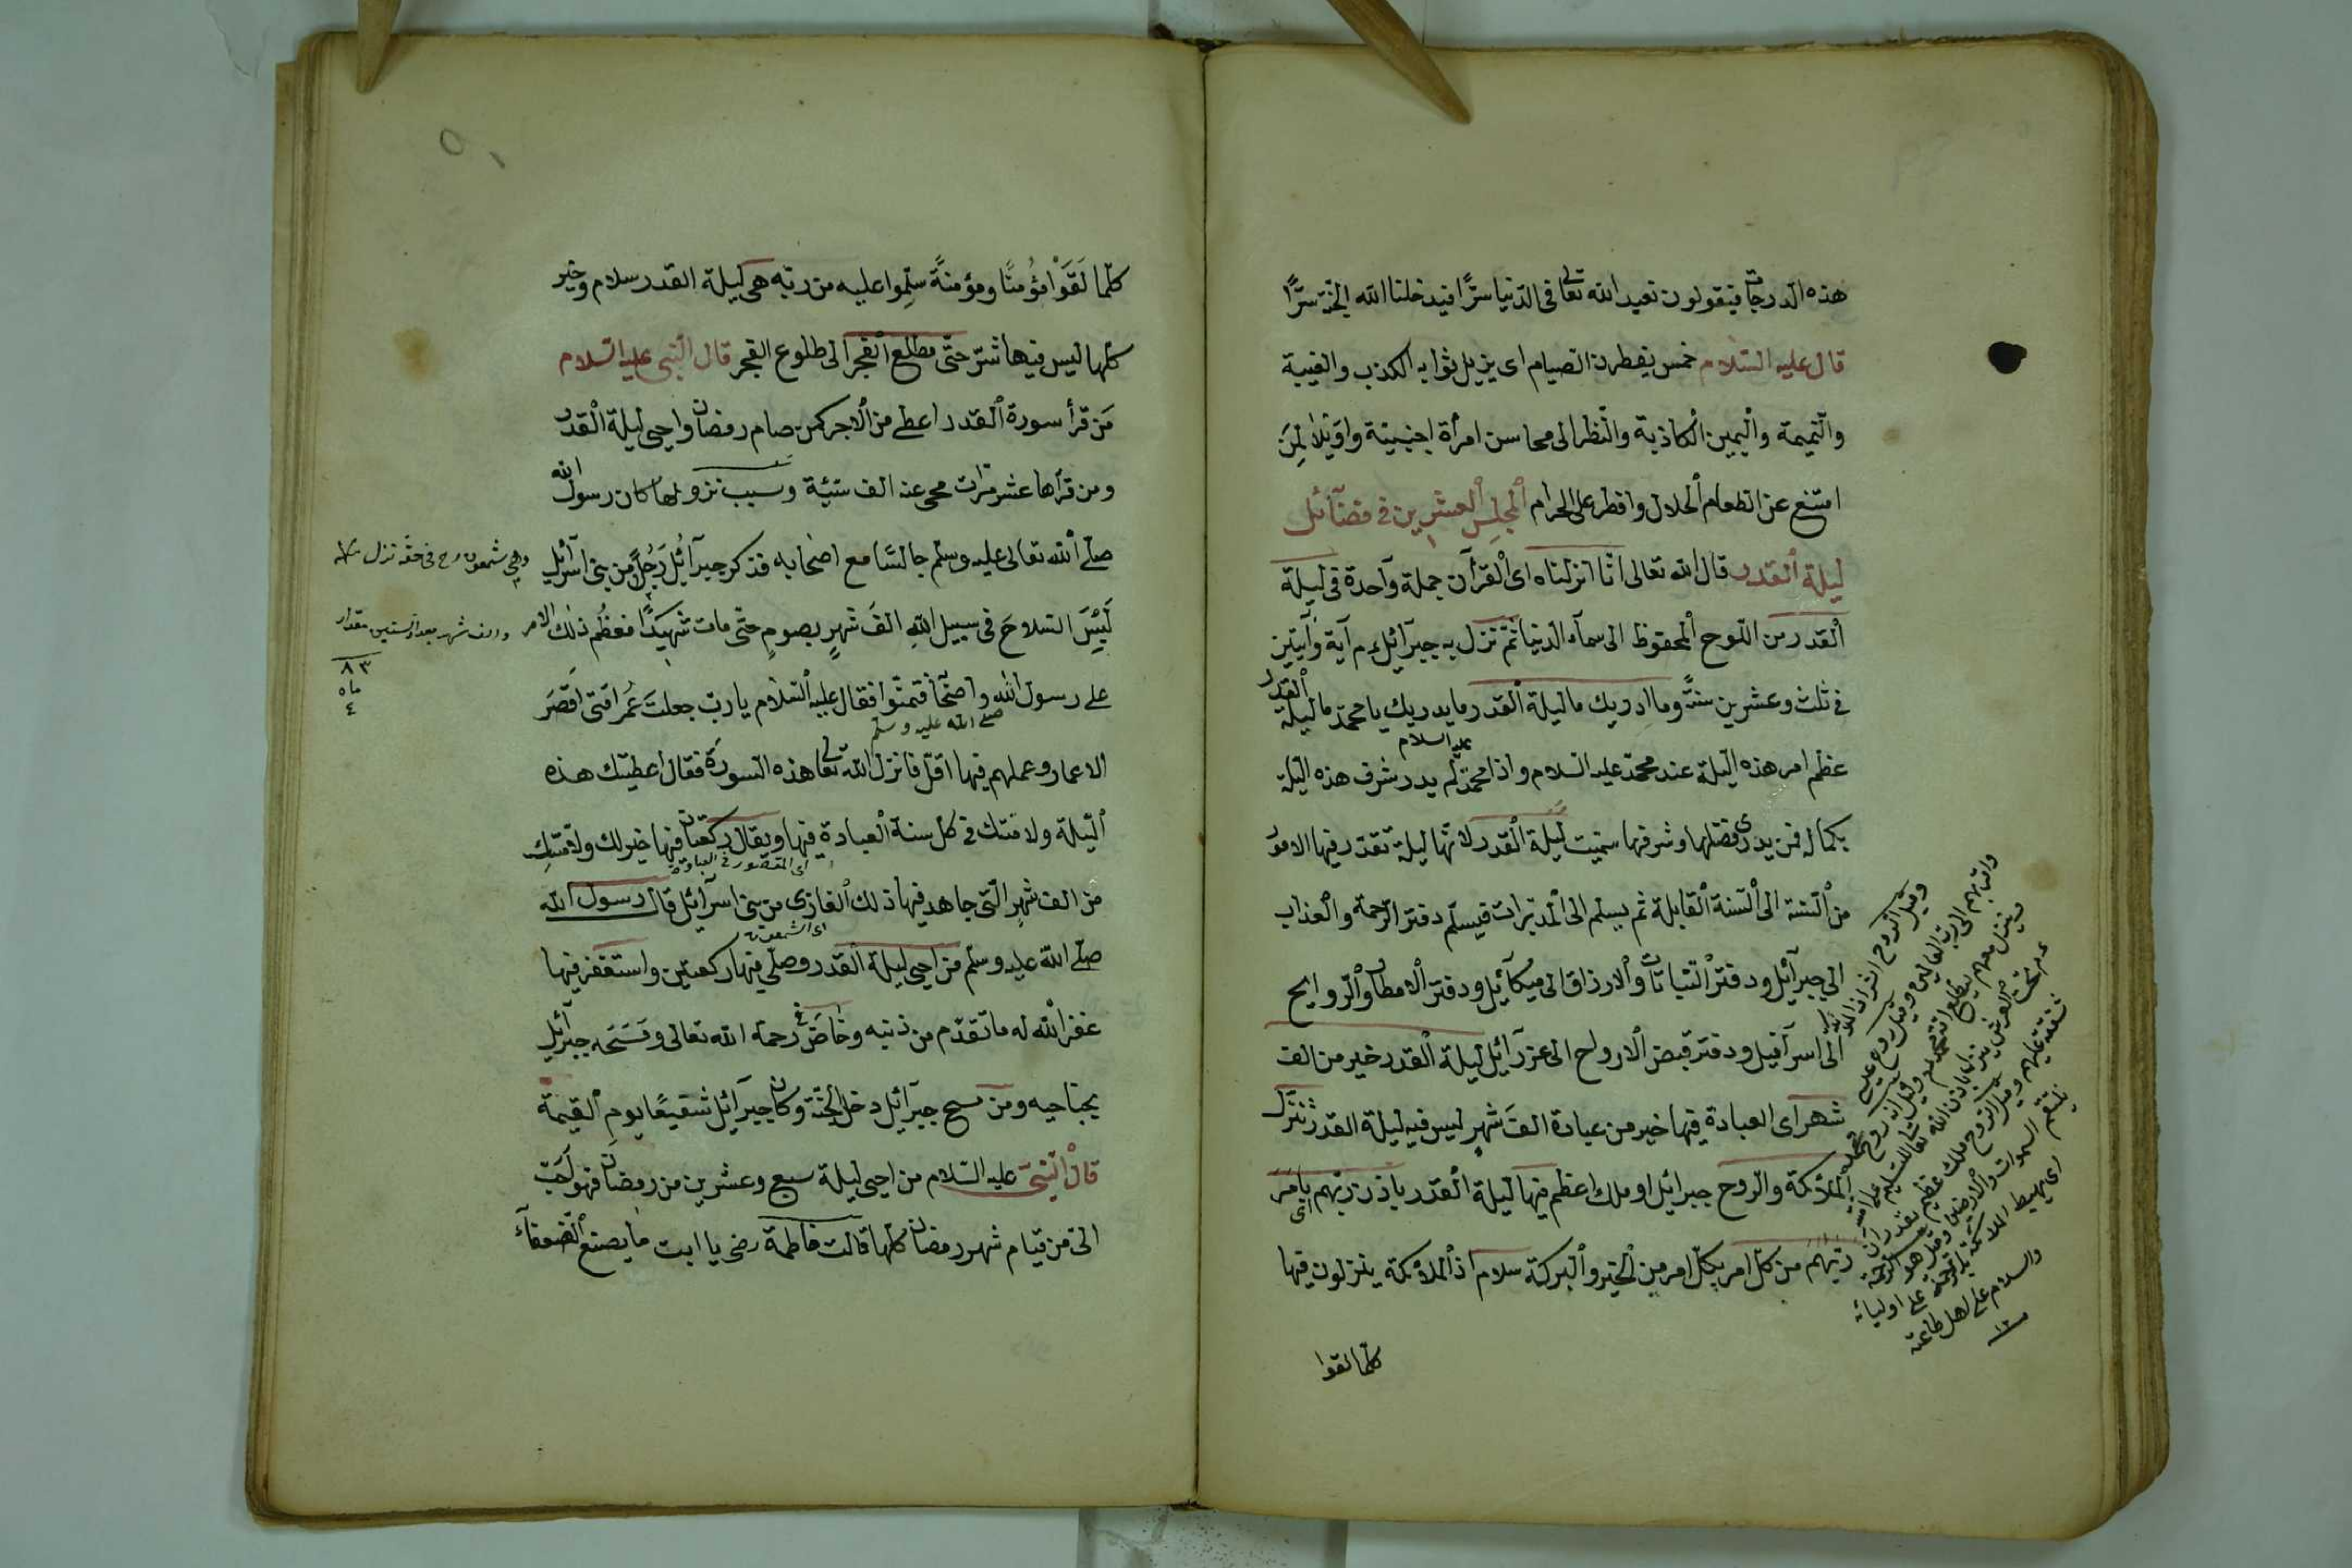 هذه الدرجات فيقولون نعبد الله تعالى فى الدنيا سرًّا فيدخلنا الله الجنة سرًّا
قال عليه السلام خمس يفطرن الصيام اى يزيل ثوابه الكذب والغيبة
والنميمة واليمين الكاذبة والنظر الى محاسن امرأة اجنبية واويلا لمن
امتنع عن الطعام الحلال وافطر على الحرام المجلس العشرين فى فضائل
ليلة القدر قال الله تعالى انا انزلناه اى القرآن جملة واحدة فى ليلة
القدر من اللوح المحفوظ الى سماء الدنيا ثم نزل به جبرآئل ع م آية وآيتين
فى ثلث وعشرين سنة وما ادريك ما ليلة القدر ما يدريك يا محمد ما ليلة القدر
عظم امر هذه الليلة عند محمد عليه السلام واذا محمد عليه السلام لم يدر شرف هذه الليلة
بكماله فمن يدرى فضلها وشرفها سميت ليلة القدر لانها ليلة تقدر فيها الامور
من السنة الى السنة القابلة ثم يسلم الى المدبرات فيسلم دفتر الرحمة والعذاب
الى جبرآئل ودفتر النباتات والارزاق الى ميكآئل ودفتر الامطار والروايح
الى اسرآفيل ودفتر قبض الارواح الى عزرآئل ليلة القدر خير من الف
شهر اى العبادة فيها خير من عبادة الف شهر ليس فيه ليلة القدر تنزل
الملائكة والروح جبرائل او ملك اعظم فيها ليلة القدر باذن ربهم بامر
ربهم من كل امر بكل امر من الخير والبركة سلام اذ الملائكة ينزلون فيها
كلما لقوا
والسلام على اهل طاعته
كلما لقوا مؤمنًا ومؤمنة سلموا عليه من ربه هى ليلة القدر سلام وخير
كلها ليس فيها شر حتى مطلع الفجر الى طلوع الفجر قال النبى عليه السلام
من قرأ سورة القدر اعطى من الاجر كمن صام رمضان واحيى ليلة القدر
ومن قرأها عشر مرات محى عنه الف سيئة وسبب نزولها كان رسول الله
صلى الله تعالى عليه وسلم جالسًا مع اصحابه فذكر جبرآئل رجلًا من بنى اسرآئل
لبس السلاح فى سبيل الله الف شهر بصوم حتى مات شهيدًا فعظم ذلك الامر
والف شهر بعد السنين مقدار
٨٣
ماه
٤
على رسول الله صلى الله عليه وسلم واصحابه فتمنوا فقال عليه السلام يا رب جعلت عمر امتى اقصر
الاعمار وعملهم فيها اقل فانزل الله تعالى هذه السورة فقال اعطيتك هذه
الليلة ولامتك فى كل سنة العبادة فيها ويقال ركعتان فيها خير لك ولامتك
من الف شهر التى جاهد فيها ذلك الغازى من بنى اسرآئل قال رسول الله
اى الشمعون
صلى الله عليه وسلم من احيى ليلة القدر وصلى فيها ركعتين واستغفر فيها
غفر الله له ما تقدم من ذنبه وخاض فى رحمة الله تعالى ومسحه جبرآئل
بجناحيه ومن مسح جبرآئل دخل الجنة وكان جبرآئل شفيعًا يوم القيمة
قال النبى عليه السلام من احيى ليلة سبع وعشرين من رمضان فهو احب
الى من قيام شهر رمضان كلها قالت فاطمة رضى يا ابت ما يصنع الضعفآء